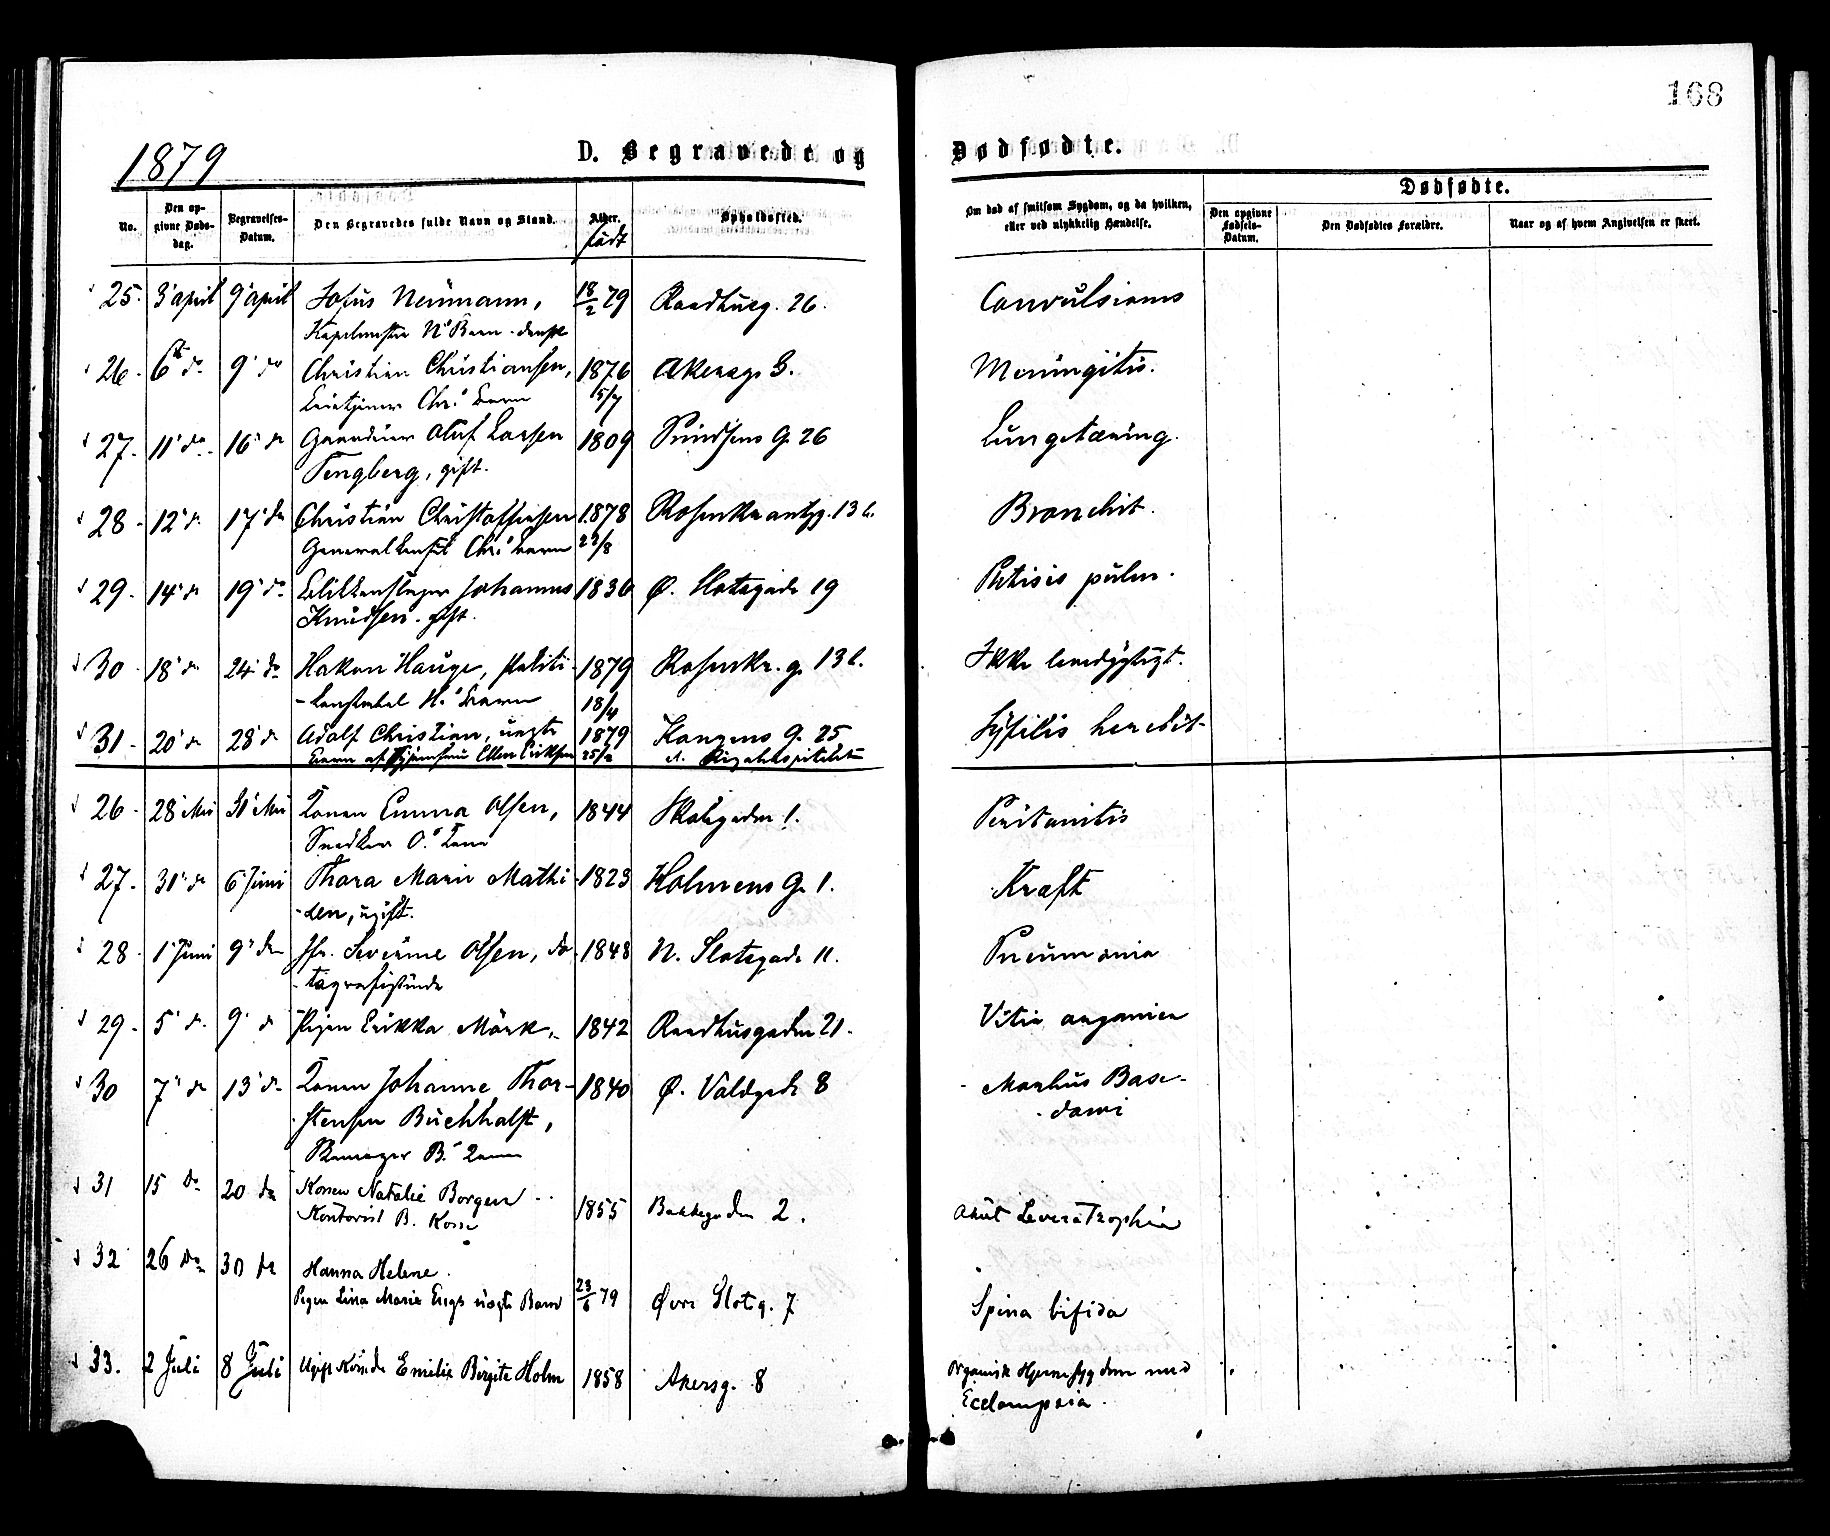 168
1879
D. Begravede og
Dødfødte.
No.
Den op-
givne Døds-
dag.
Begravelses-
Datum.
Den Begravedes fulde Navn og Stand.
Alder.
født
Opholdssted.
Om død af smitsom Sygdom, og da hvilken,
eller ved ulykkelig Hændelse.
Dødfødte.
Den opgivne
Fødsels-
Datum.
Den Dødfødtes Forældre.
Naar og af hvem Angivelsen er skeet.
25. 3' april 9' april Sofus Neumann, 18/2 79 Raadhusg. 26. Convulsions
Kapelmester N's Barn
26. 6' do 9' do Christian Christiansen, 1876 Akersg. Meningitis.
Chr.' Barn 5/7
27. 11' do 16' do Gaardeier Oluf Larsen 1809 G. 26 Lungetæring.
Tengberg, gift.
28 12' do 17' do Christian Christoffersen 1878 Rosenkrantzg. 13 b. Bronchit.
Chr.' Barn 22/8
29. 14' do 19' do Blikkenslager Johannes 1836 Ø. Slotsgade 19 Phtisis pulm.
Knudsen. gift.
30 18' do 24' do Hakon Hauge, Politi- 1879 Rosenkr. g. 13 b. Ikke levedygtigt.
-konstabel H.' Barn 18/4
31. 20' do 28' do Adolf Christian, uægte 1879 Kongens G. 25 Syfilis heredit
Barn af Ellen Eriksen 25/2 Rigshospitalet
26. 28' Mai 31' Mai Konen Emma Olsen, 1844 Skolegaden 1. Peritonitis
Snedker O.' Kone
27. 31' do 6' Juni Thora Marie Mathi- 1823 Holmens G. 1. Kræft
-den, ugift.
28. 1' Juni 9' do Jfr. Severine Olsen, Fo- 1848 N. Slotsgade 11. Pneumonia
-tografistinde
29. 5' do 9' do Pigen Erikka Mörk, 1842 Raadhusgaden 21. Vitia organica
30 7' do 13' do Konen Johanne Thor- 1840 Ø. Voldgade 8 Morbus Base-
-stensen Buchholst, -dowi
B.' Kone
31 15 do 20 do Konen Natalie Borgen 1855 Bakkegaden 2. Akut Leveratrophia
Kontorist B. Kone
32 26 do 30 do Hanna Helene. 23/6 79 Øvre Slotsg. 7 Spina bifida
Pigen Lina Marie Engs uægte Barn
33. 2 Juli 8 Juli Ugift Kvinde Emilie Birgite Holm 1858 Akersg. 8 Organisk Hjernesygdom med
Eclampsia.